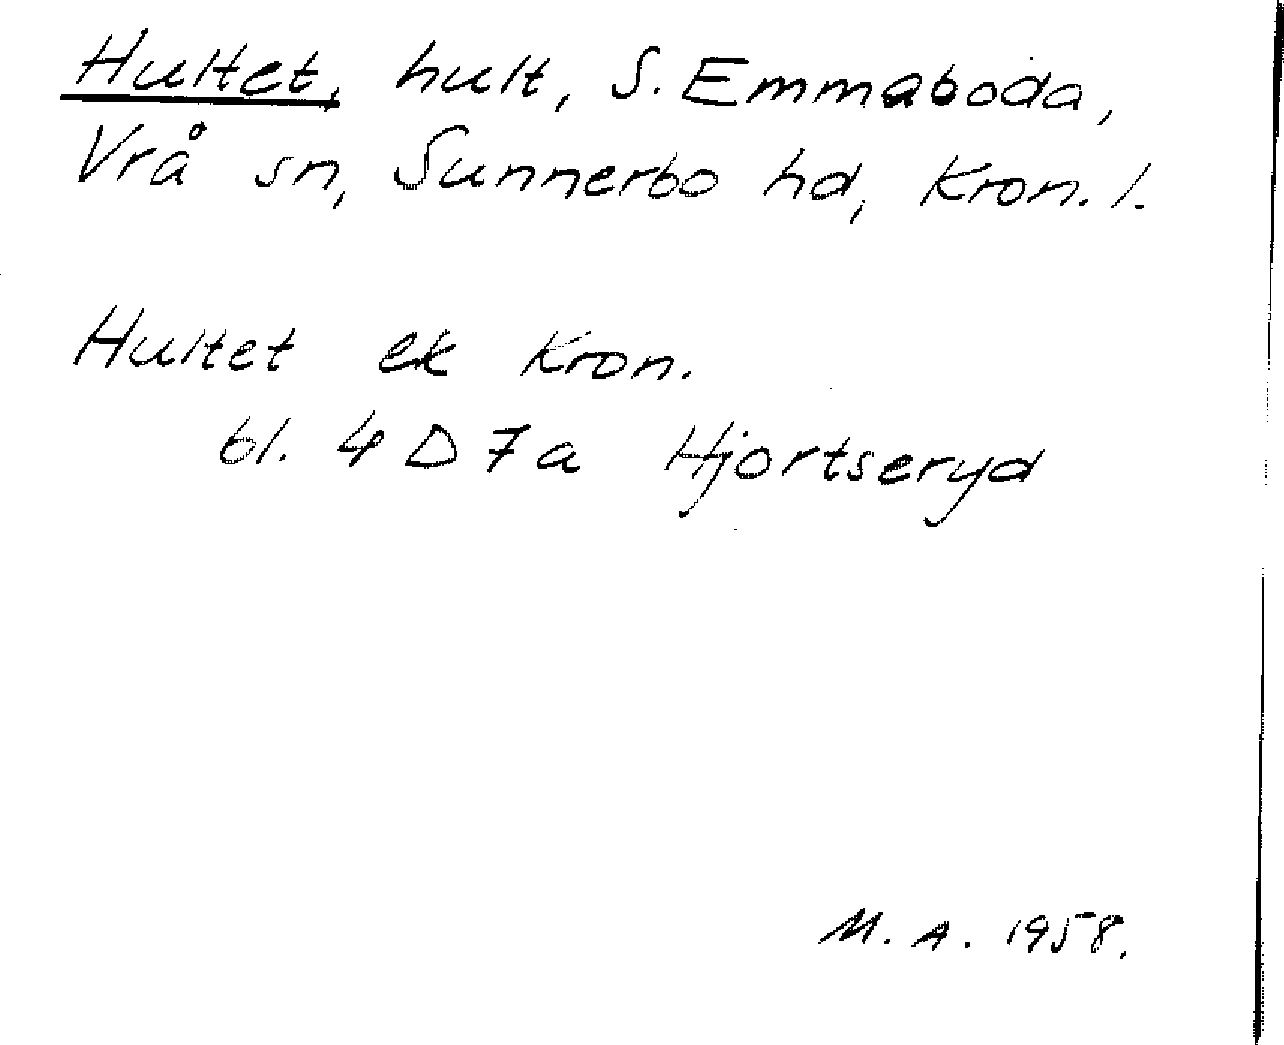 Hultet, hult, S. Emmaboda,
Vrå sn, Sunnerbo hd, Kron. l.
Hultet ek Kron.
bl. 4 D 7 a Hjortseryd
M. A. 1958.